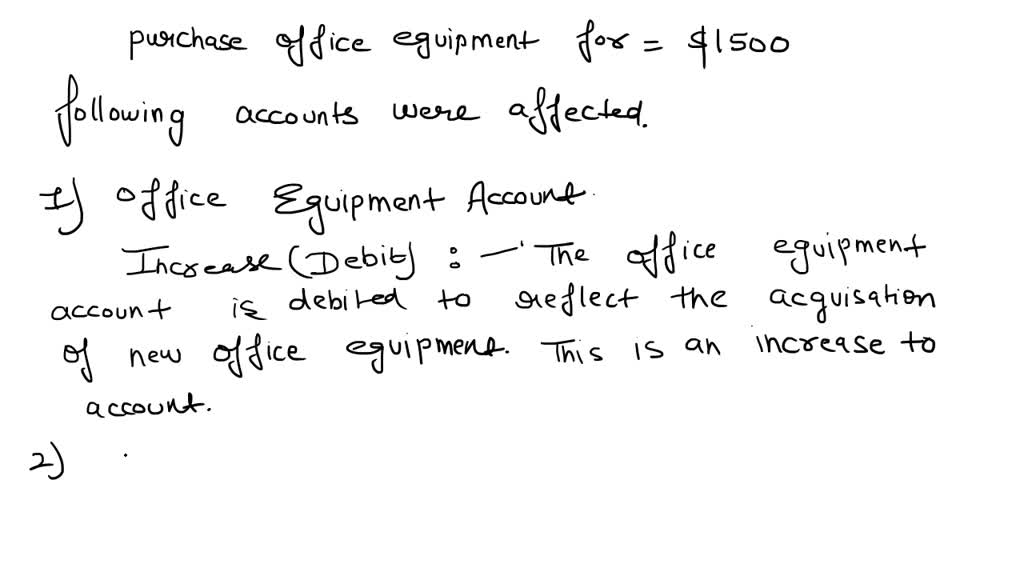 purchase office equipment for = $1500
following accounts were affected.
1) Office Equipment Account.
Increase (Debit) : - The office equipment
account is debited to reflect the acquisation
of new office equipment. This is an increase to
account.
2)